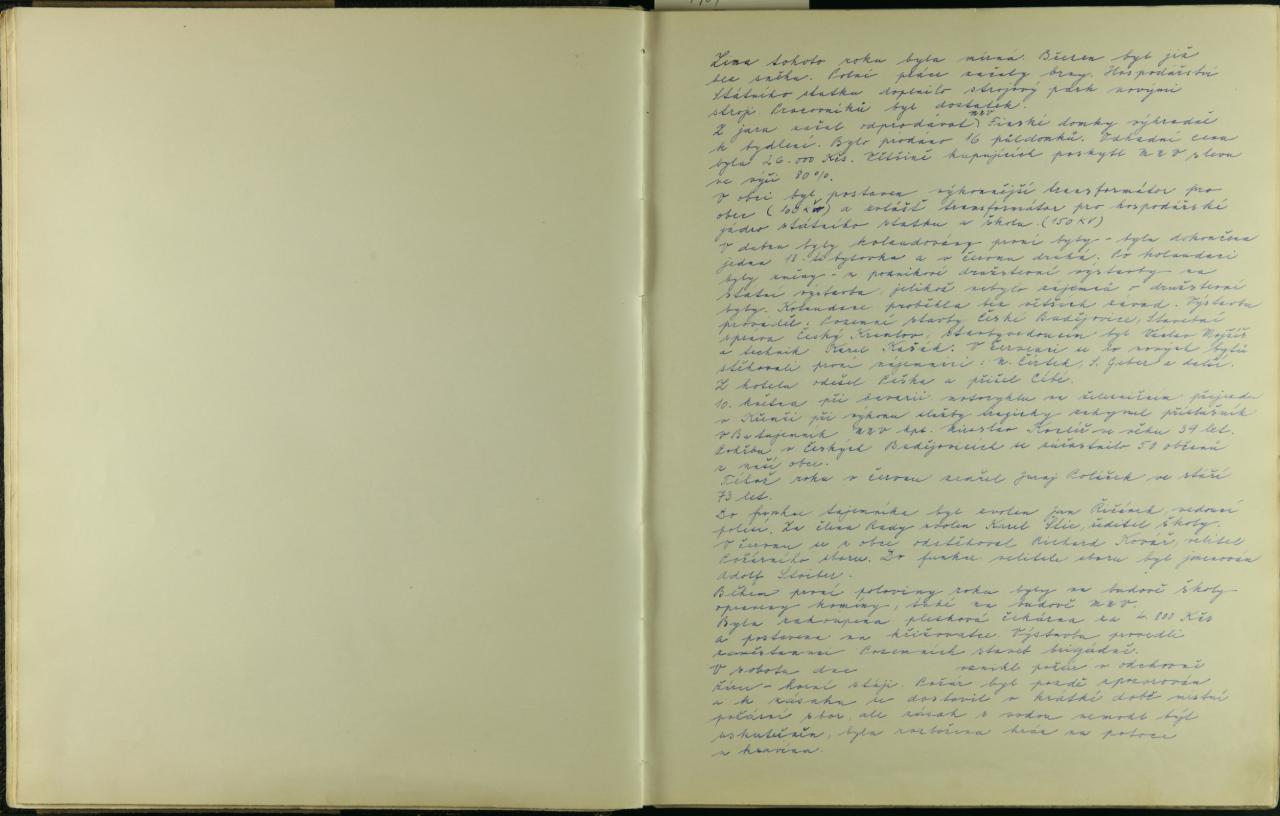 Zima tohoto roku byla mírná. Březen byl již
bez sněhu. Polní práce začaly brzy. Hospodářství
Státního statku doplnilo strojový park novými
stroji. Pracovníků byl dostatek.
Z jara začal odprodávat MNV Finské domky výhradně
k bydlení. Bylo prodáno 16 půldomků. Odhadní cena
byla 26.000 Kčs. Většině kupujících poskytl MNV slevu
ve výši 80%.
V obci byl postaven výkonnější transformátor pro
obec (100 KV) a zvlášť transformátor pro hospodářské
jádro státního statku a školu. (150 KV)
V dubnu byly kolaudovány první byty - byla dokončena
jedna 18. bytovka a v červnu druhá. Po kolaudaci
byly změny - z podnikové družstevní výstavby na
státní výstavbu, jelikož nebylo zájemců o družstevní
byty. Kolaudace proběhla bez větších závad. Výstavbu
prováděl: Pozemní stavby České Budějovice, Stavební
správa Český Krumlov, stavbyvedoucím byl Václav
a technik Karel Kašák. V červenci se do nových bytů
stěhovali první nájemníci: M. Čirtek, S. Geber a další.
Z hotelu odešel Paška a přišel Cibé.
10. května při havarii motocyklu na železničním přejezdu
v Křemži při výkonu služby tragicky zahynul příslušník
VB tajemník MNV kpt. Miroslav Kozlík ve věku 39 let.
Pohřbu v Českých Budějovicích se zúčastnilo 50 občanů
z naší obce.
Téhož roku v červnu zemřel Juraj Poláček ve stáří
73 let.
Do funkce tajemníka byl zvolen Jan Řičánek, vedoucí
polesí. Za člena Rady zvolen Karel Štic, ředitel školy.
V červnu se z obce odstěhoval Richard Kovář, velitel
Požárního sboru. Do funkce velitele sboru byl jmenován
Adolf Stoiber.
Během první poloviny roku byly na budově školy
opraveny komíny, také na budově MNV.
Byla zakoupena plechová čekárna za 4.800 Kčs
a postavena na křižovatce. Výstavbu provedli
zaměstnanci Pozemních staveb brigádně.
V sobotu dne vznikl požár v odchovně
- horní stáji. Požár byl pozdě zpozorován
a k zásahu se dostavil v krátké době místní
požární sbor, ale zásah s vodou nemohl být
uskutečněn, byla rozbořena hráz na potoce
u kravína.